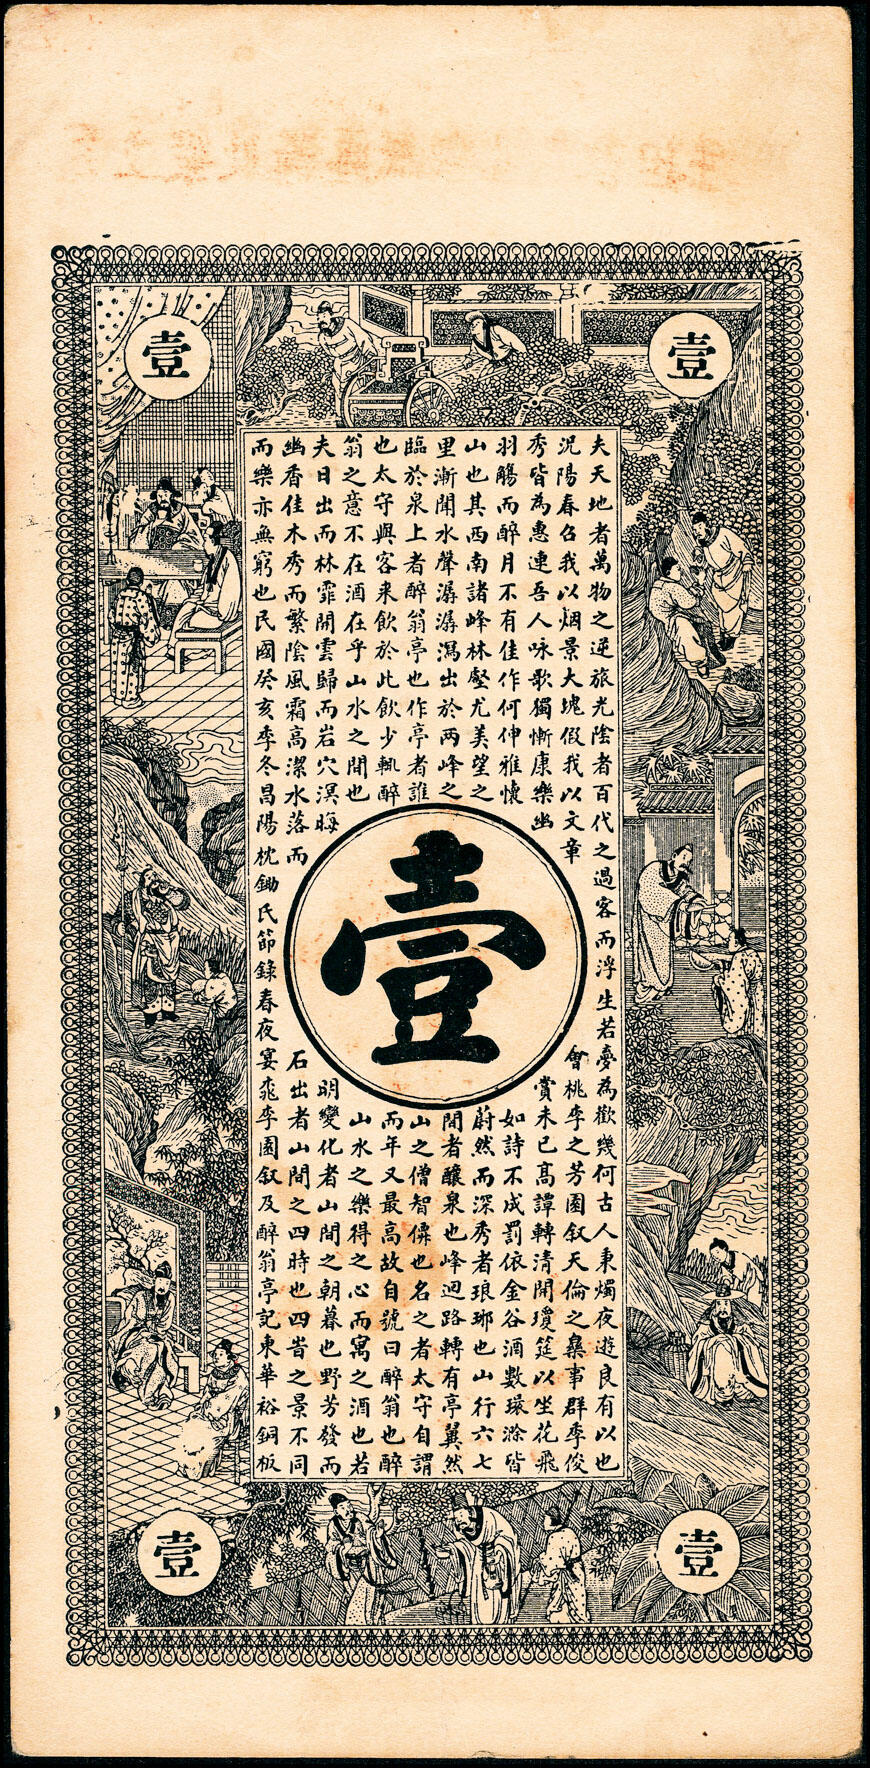 壹
壹
夫天地者萬物之逆旅光陰者百代之過客而浮生若夢為歡幾何古人秉燭夜遊良有以也
況陽春召我以烟景大塊假我以文章會桃李之芳園叙天倫之樂事群季俊
秀皆為惠連吾人咏歌獨慚康樂幽賞未已高譚轉清開瓊筵以坐花飛
羽觴而醉月不有佳作何伸雅懷如詩不成罰依金谷酒數環滁皆
山也其西南諸峰林壑尤美望之蔚然而深秀者琅琊也山行六七
里漸聞水聲潺潺瀉出於两峰之間者釀泉也峰迴路轉有亭翼然
臨於泉上者醉翁亭也作亭者誰山之僧智僊也名之者太守自謂
也太守與客來飲於此飲少輒醉而年又最高故自號曰醉翁也醉
翁之意不在酒在乎山水之間也山水之樂得之心而寓之酒也若
夫日出而林霏開雲歸而岩穴溟晦明變化者山間之朝暮也野芳發而
幽香佳木秀而繁陰風霜高潔水落而石出者山間之四時也四旹之景不同
而樂亦無窮也民國癸亥季冬昌陽枕鋤氏節錄春夜宴桃李園叙及醉翁亭記東華裕銅板
壹
壹
壹